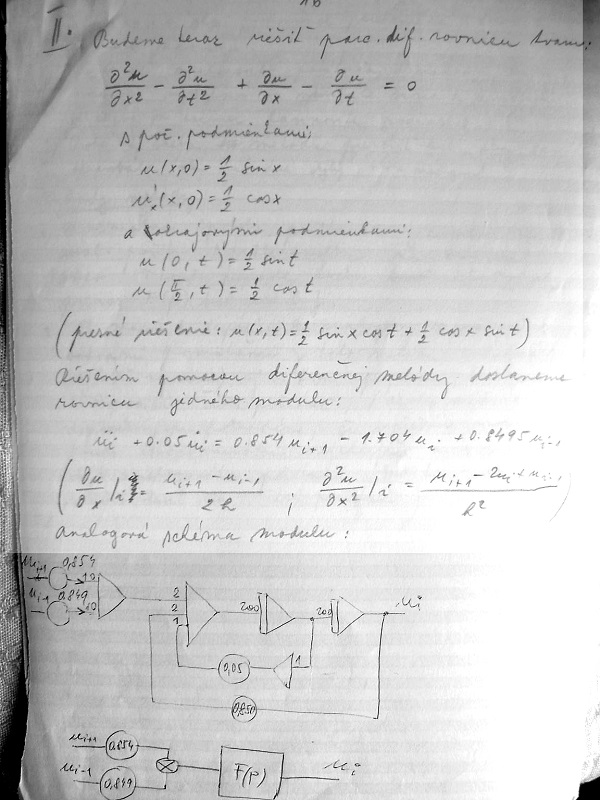 II. Budeme teraz riešiť parc. dif. rovnicu tvaru:
∂²u/∂x² − ∂²u/∂t² + ∂u/∂x − ∂u/∂t = 0
s poč. podmienkami:
u(x,0) = 1/2 sin x
u'ₓ(x,0) = 1/2 cos x
a okrajovými podmienkami:
u(0,t) = 1/2 sin t
u(π/2,t) = 1/2 cos t
(presné riešenie: u(x,t) = 1/2 sin x cos t + 1/2 cos x sin t)
Riešením pomocou diferenčnej metódy dostaneme
rovnicu jedného modulu:
üᵢ + 0.05 u̇ᵢ = 0.854 uᵢ₊₁ − 1.704 uᵢ + 0.8495 uᵢ₋₁
(∂u/∂x /i = (uᵢ₊₁ − uᵢ₋₁)/2h ; ∂²u/∂x² /i = (uᵢ₊₁ − 2uᵢ + uᵢ₋₁)/h²)
Analogová schéma modulu:
uᵢ₊₁ 0,854 10
uᵢ₋₁ 0.849 10
2 2 1 200 200 uᵢ
0,05 1
0,850
uᵢ₊₁ 0.854
F(p) uᵢ
uᵢ₋₁ 0,849